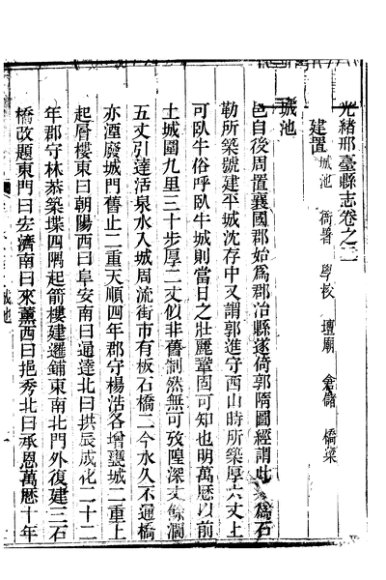 光緒邢臺縣志卷之二
建置 城池 衙署 學校 壇廟 倉儲 橋梁
城池
邑自後周置襄國郡始為郡治縣遂倚郭隋圖經謂此為石
勒所築號建平城沈存中又謂郭進守西山時所築厚六丈上
可臥牛俗呼臥牛城則當日之壯麗鞏固可知也明萬曆以前
土城圍九里三十步厚二丈似非舊制然無可攷隍深丈餘濶
五丈引達活泉水入城周流街市有板石橋二今水久不運橋
亦湮廢城門舊止二重天順四年郡守楊浩各增甕城二重上
起層樓東曰朝陽西曰阜安南曰通達北曰拱辰成化二十二
年郡守林恭築堞四隅起箭樓建邏鋪東南北門外復建三石
橋改題東門曰宏濟南曰來薰西曰挹秀北曰承恩萬曆十年
城池